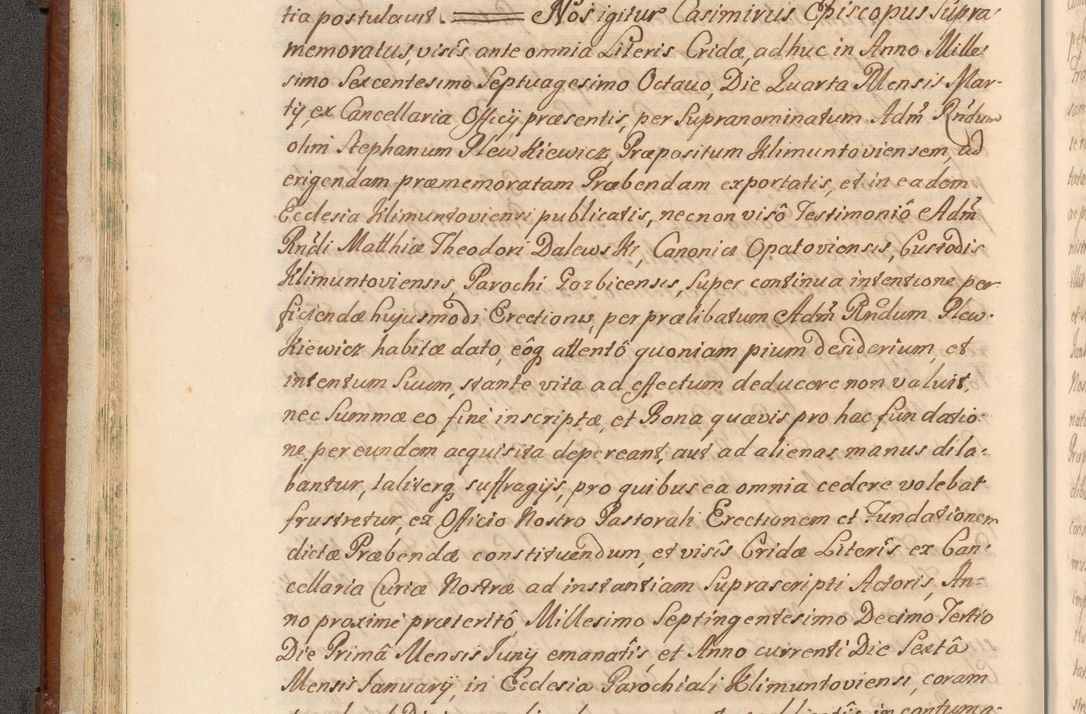 tia postulavit. Nos igitur Casimirus Episcopus supra
memoratus, visîs ante omnia Literis Cridæ, adhuc in Anno Mille,
simo Sexcentesimo Septuagesimo Octavo, Die Quarta Mensis Mar-
tÿ, ex Cancellaria Officÿ, præsentis, per supranominatum Adm̃ Rñdum
olim Stephanum Plewkiewicz, Præpositum Klimuntoviensem, ad
erigendam præmemoratam Præbendam exportatis, et in eadem
Ecclesia Klimuntoviensi publicatis, necnon visô Testimoniô Adm̃
Rñdi Matthiæ Theodori Dalewski, Canonici Opatoviensis, Custodis
Klimuntoviensis, Parochi Gozbicensis, super continua intentione per
ficiendæ hujusmodi Erectionis, per prælibatum Adm̃ Rñdum Plew-
kiewicz habitæ dato, eôq attentô quoniam pium desiderium, et
intentum suum, stante vita ad effectum deducere non valuit,
nec summæ eo fine inscriptæ, et Bona quævis pro hac fundatio-
ne, per eundem acquisita depereant, aut ad alienas manus dila-
bantur, taliterq suffragÿs, pro quibus ea omnia cedere volebat
frustretur, ex Officio Nostro Pastorali Erectionem et Fundationem
dictæ Præbendæ constituendum, et visîs Cridæ Literîs ex Can-
cellaria Curiæ Nostræ ad instantiam suprascripti Actoris, An-
no proxime præteritô Millesimo Septingentesimo Decimo Tertio
Die Primâ Mensis Junÿ emanatîs, et Anno currenti Die Sextâ
Mensis Januarÿ, in Ecclesia Parochiali Klimuntoviensi, coram